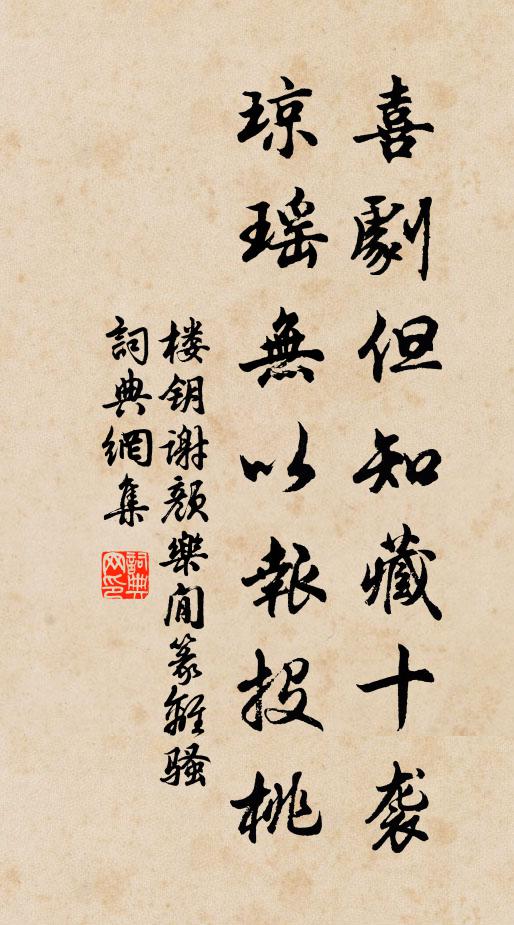 喜劇但知藏十袭
琼瑶無以報投桃
楼钥谢颜樂闻篆離骚
詞典網集
詞典网印